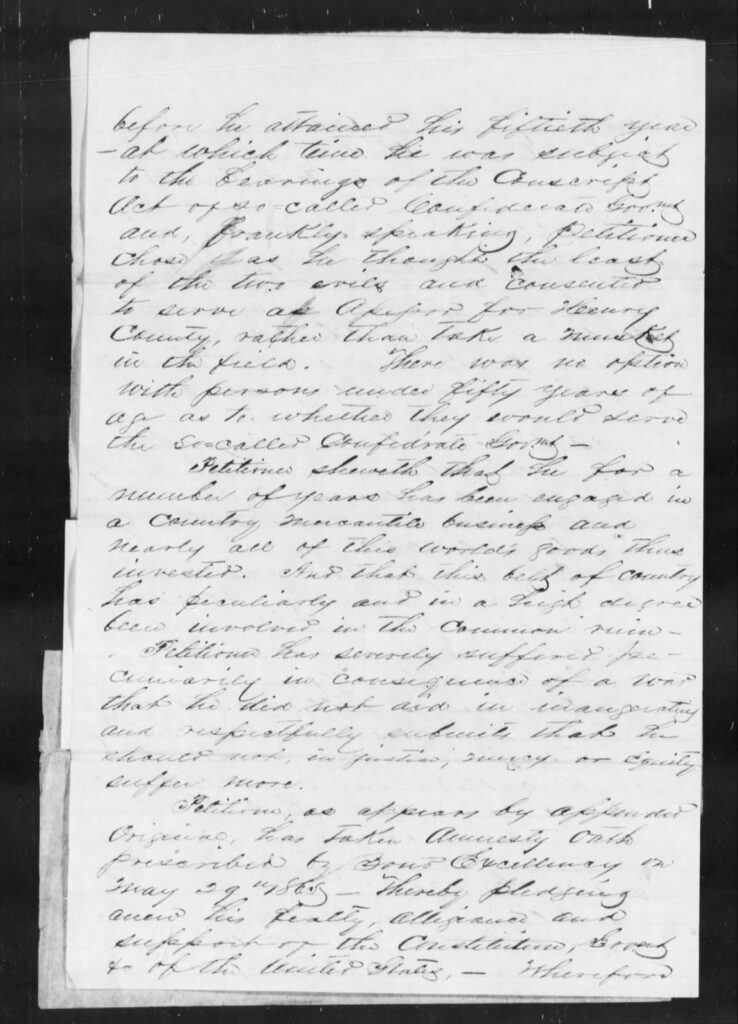 before he attained his fiftieth year
– at which time he was subject
to the bearings of the Conscript
Act of so-called Confederate Govmt
and, frankly speaking, Petitioner
chose as he thought the least
of the two evils and consented
to serve as Assessor for Henry
County, rather than take a musket
in the field. There was no option
with persons under fifty years of
age as to whether they would serve
the so-called Confedrate Govmt –
Petitioner sheweth that he for a
number of years has been engaged in
a Country Mercantile business and
nearly all of this world's goods thus
invested. And that this belt of country
has peculiarly and in a high degree
been involved in the common ruin –
Petitioner has severely suffered pe-
cuniarily in consequence of a war
that he did not aid in inaugerating
and respectfully submits that he
should not, in justice, mercy or equity
suffer more.
Petitioner, as appears by appended
Original, has taken Amnesty Oath
prescribed by Your Excellency on
May 29th 1865 – Thereby pledging
anew his fealty, allegiance and
support of the Constitution, Govmt
&c of the United States, – Wherefore